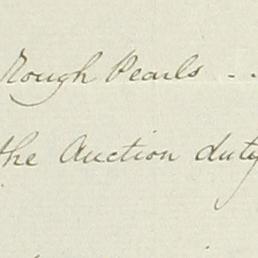 Rough Pearls - -
the Auction duty